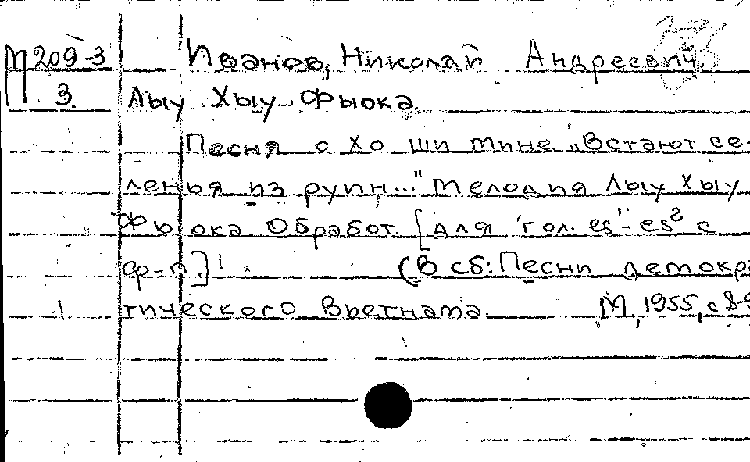 М 209-3 Иванов, Николай Андреевич.
3. Лыу Хыу Фыока.
Песня о Хо Ши Мине „Встают се-
ленья из руин..." Мелодия Лыу Хыу
Фыока Обработ. [для гол. es¹-es² с
ф-п.] (В сб: Песни демокра
тического Вьетнама М, 1955, с 8-9